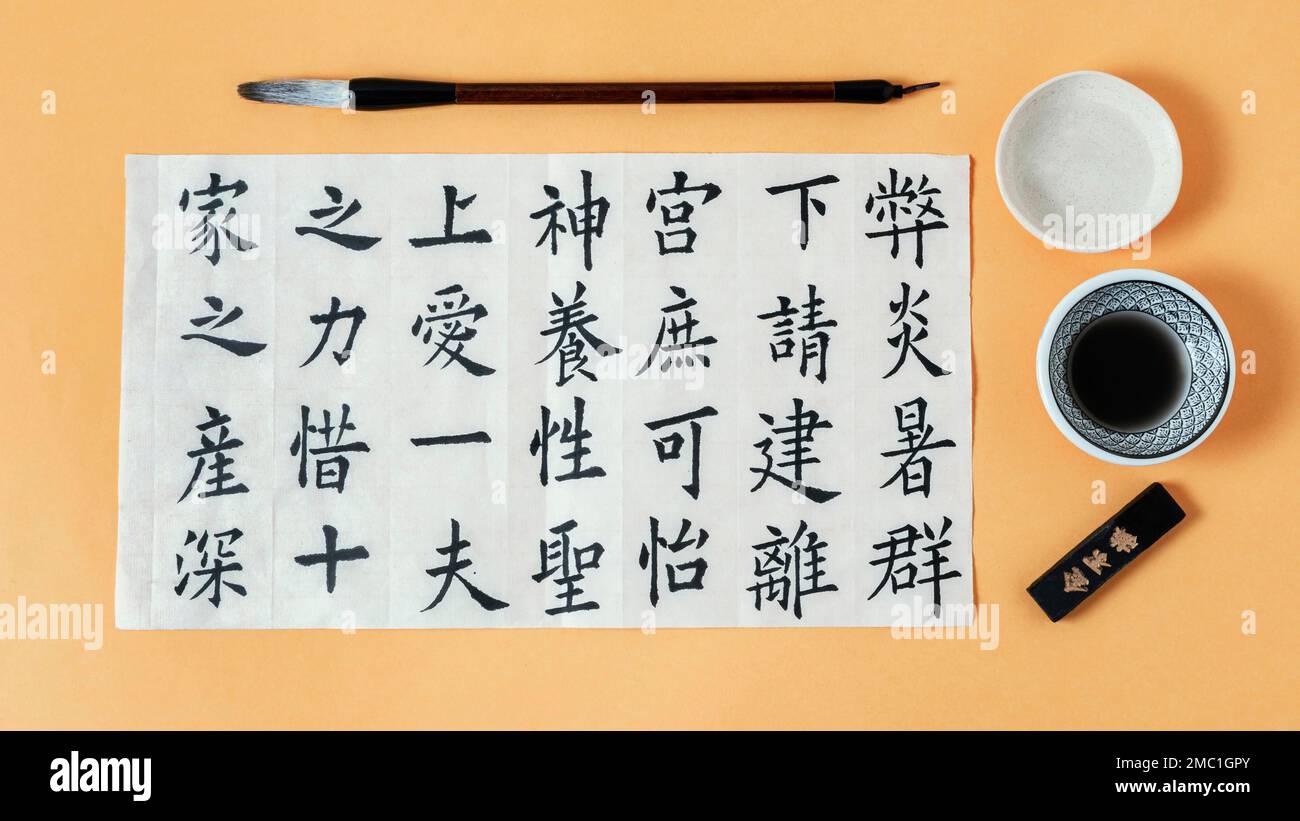 弊炎暑群
下請建離
宮庶可怡
神養性聖
上愛一夫
之力惜十
家之産深
alamy
Image ID: 2MC1GPY
www.alamy.com